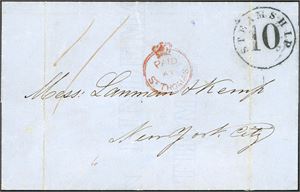 STEAMSHIP
10
PAID
AT
ST. THOMAS
Mess. Lanman & Kemp
New York City